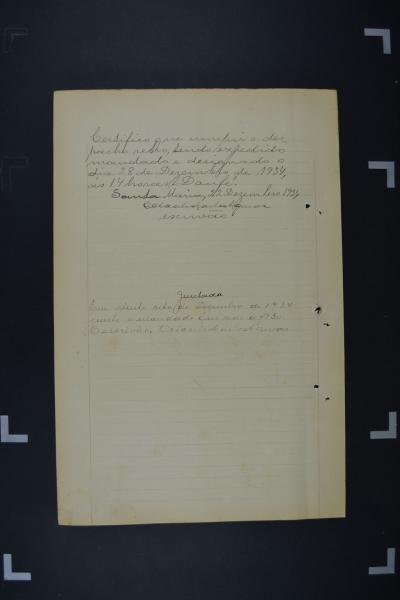 Certifico, que cumpri o des
pacho retro, sendo expedido
mandado e designado o
dia 28 de Dezembro de 1934,
ás 14 horas. Doufé.
Santa Maria, 22 Dezembro 1934
escrivão
Juntada
Em vinte oito de Dezembro de 1934
junto o mandado que
O escrivão,